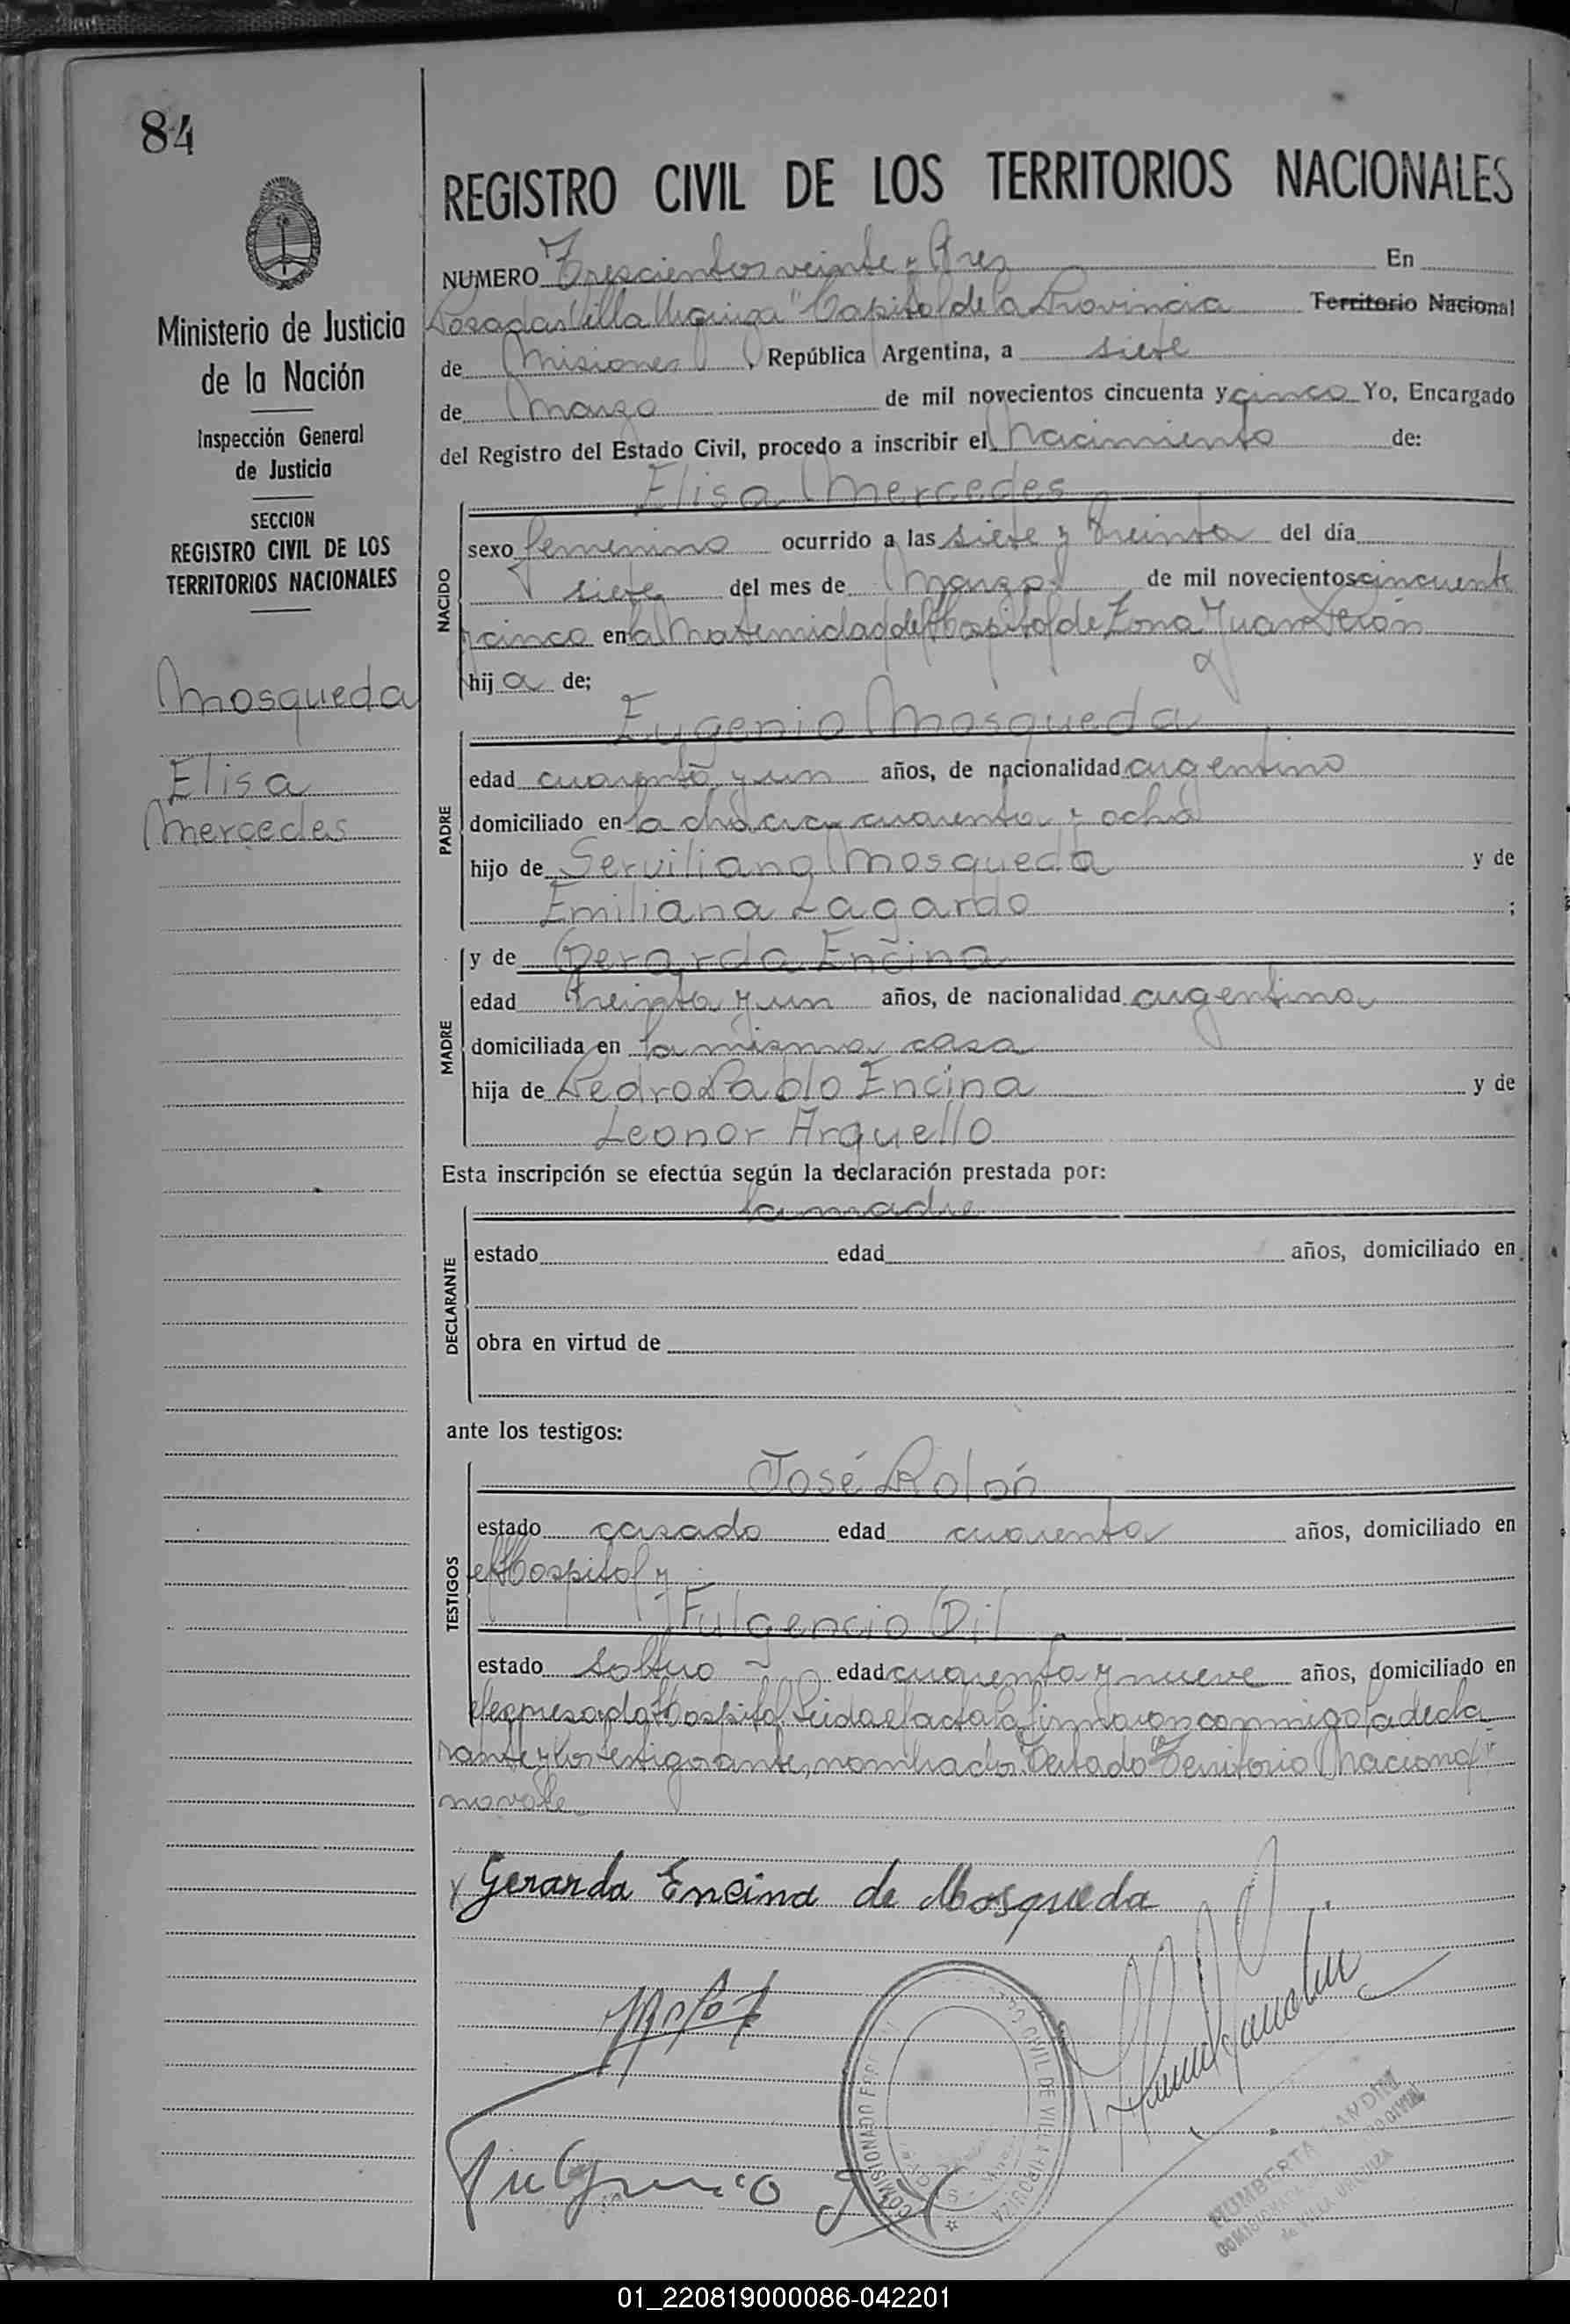 84
REGISTRO CIVIL DE LOS TERRITORIOS NACIONALES
NUMERO Trescientos veinte y tres En
Posadas Villa Urquiza" Capital de la Provincia Territorio Nacional
de Misiones, República Argentina, a siete
de Marzo de mil novecientos cincuenta y cinco Yo, Encargado
del Registro del Estado Civil, procedo a inscribir el Nacimiento de:
Ministerio de Justicia
de la Nación
Inspección General
de Justicia
SECCION
REGISTRO CIVIL DE LOS
TERRITORIOS NACIONALES
Mosqueda
Elisa
Mercedes
NACIDO
Elisa Mercedes
sexo femenino ocurrido a las siete y treinta del día
siete del mes de Marzo de mil novecientos cincuenta
y cinco en la Maternidad del Hospital de Zona Juan Perón
hija de;
PADRE
Eugenio Mosqueda
edad cuarenta y un años, de nacionalidad argentino
domiciliado en la chacra cuarenta y ocho
hijo de Serviliano Mosqueda y de
Emiliana Lagardo ;
MADRE
y de Gerarda Encina
edad treinta y un años, de nacionalidad argentina
domiciliada en la misma casa
hija de Pedro Pablo Encina y de
Leonor Arquello
Esta inscripción se efectúa según la declaración prestada por:
DECLARANTE
la madre
estado edad años, domiciliado en
obra en virtud de
ante los testigos:
TESTIGOS
José Rolón
estado casado edad cuarenta años, domiciliado en
el Hospital y
Fulgencio Dil
estado soltero edad cuarenta y nueve años, domiciliado en
el expresado Hospital. Leida el acta la firmaron conmigo la decla
rante y los testigos antes nombrados. Testado "Territorio Nacional"
no vale
Gerarda Encina de Mosqueda
Fulgencio Dil
COMISIONADO CIVIL DE VILLA URQUIZA
HUMBERTA LANDRI
de VILLA URQUIZA
01_220819000086-042201